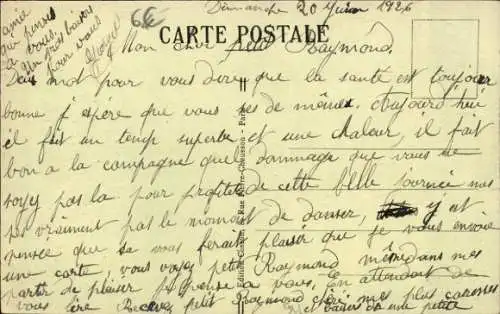 Dimanche 20 Juin 1926
6€
CARTE POSTALE
Mon cher petit Raymond.
Deux mot pour vous dire que la santé est toujour
bonne j'éspère que vous êtes de mêmes. Aujourd'hui
il fait un temp superbe et une chaleur, il fait
bon a la campagne quel dommage que vous ne
soyez pas la pour profiter de cette belle journée mes
pas vraiment pas le moment de danser, j'y est
pensée que sa vous ferait plaisir que je vous envoie
une carte, vous voyez petit Raymond même dans mes
partir de plaisir je pense a vous. En attendant de
vous lire Recevez petit Raymond chéri mes plus caresses
et baiser de une petite
amie
qui penses
a vous.
un gros baiser
pour vous